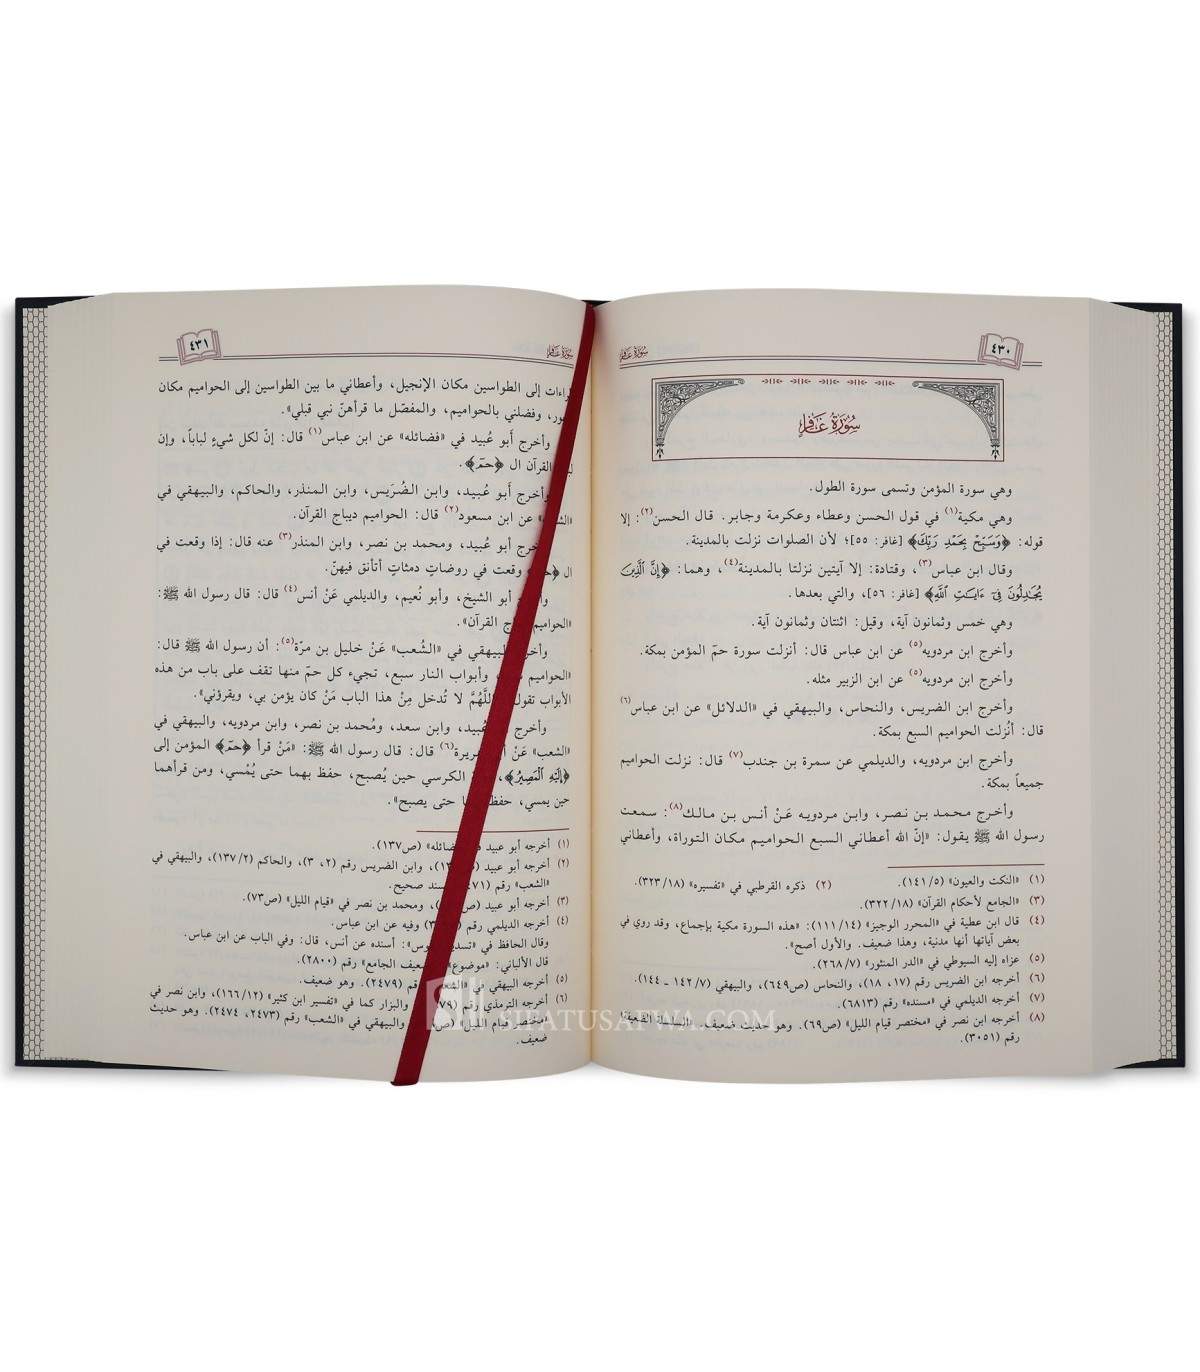 ٤٣٠
سورة غافر
سُورَةُ غَافِرٍ
وهي سورة المؤمن وتسمى سورة الطول.
وهي مكية(١) في قول الحسن وعطاء وعكرمة وجابر. قال الحسن(٢): إلا
قوله: ﴿وَسَبِّحْ بِحَمْدِ رَبِّكَ﴾ [غافر: ٥٥]؛ لأن الصلوات نزلت بالمدينة.
وقال ابن عباس(٣)، وقتادة: إلا آيتين نزلتا بالمدينة(٤)، وهما: ﴿إِنَّ الَّذِينَ
يُجَادِلُونَ فِي ءَايَاتِ اللَّهِ﴾ [غافر: ٥٦]، والتي بعدها.
وهي خمس وثمانون آية، وقيل: اثنتان وثمانون آية.
وأخرج ابن مردويه(٥) عن ابن عباس قال: أنزلت سورة حمّ المؤمن بمكة.
وأخرج ابن مردويه(٥) عن ابن الزبير مثله.
وأخرج ابن الضريس، والنحاس، والبيهقي في «الدلائل» عن ابن عباس(٦)
قال: أنُزلت الحواميم السبع بمكة.
وأخرج ابن مردويه، والديلمي عن سمرة بن جندب(٧) قال: نزلت الحواميم
جميعاً بمكة.
وأخرج محمد بن نصر، وابن مردويه عَنْ أنس بن مالك(٨): سمعت
رسول الله ﷺ يقول: «إنّ الله أعطاني السبع الحواميم مكان التوراة، وأعطاني
(١) «النكت والعيون» (١٤١/٥). (٢) ذكره القرطبي في «تفسيره» (٣٢٣/١٨).
(٣) «الجامع لأحكام القرآن» (٣٢٢/١٨).
(٤) قال ابن عطية في «المحرر الوجيز» (١١١/١٤): «هذه السورة مكية بإجماع، وقد روي في
بعض آياتها أنها مدنية، وهذا ضعيف. والأول أصح».
(٥) عزاه إليه السيوطي في «الدر المنثور» (٢٦٨/٧).
(٦) أخرجه ابن الضريس رقم (١٧، ١٨)، والنحاس (ص٦٤٩)، والبيهقي (١٤٢/٧ ـ ١٤٤).
(٧) أخرجه الديلمي في «مسنده» رقم (٦٨١٣).
(٨) أخرجه ابن نصر في «مختصر قيام الليل» (ص٦٩). وهو حديث ضعيف. «السلسلة الضعيفة»
رقم (٣٠٥١).
٤٣١
سورة غافر
الراءات إلى الطواسين مكان الإنجيل، وأعطاني ما بين الطواسين إلى الحواميم مكان
وفضلني بالحواميم، والمفصّل ما قرأهنّ نبي قبلي».
وأخرج أَبو عُبيد في «فضائله» عن ابن عباس(١) قال: إنّ لكل شيءٍ لباباً، وإن
القرآن ال ﴿حمّ﴾.
وأخرج أَبو عُبيد، وابن الضُرَيس، وابن المنذر، والحاكم، والبيهقي في
عن ابن مسعود(٢) قال: الحواميم ديباج القرآن.
أبو عُبيد، ومحمد بن نصر، وابن المنذر(٣) عنه قال: إذا وقعت في
ال وقعت في روضاتٍ دمثاتٍ أتأنق فيهنّ.
أبو الشيخ، وأبو نُعيم، والديلمي عَنْ أنس(٤) قال: قال رسول الله ﷺ:
«الحواميم القرآن».
البيهقي في «الشُعب» عَنْ خليل بن مرّة(٥): أن رسول الله ﷺ قال:
«الحواميم وأبواب النار سبع، تجيء كل حمّ منها تقف على باب من هذه
الأبواب تقول اللَّهُمَّ لا تُدخل مِنْ هذا الباب مَنْ كان يؤمن بي، ويقرؤني».
وأخرج عُبيد، وابن سعد، ومُحمد بن نصر، وابن مردويه، والبيهقي في
«الشعب» عَنْ (٦) قال: قال رسول الله ﷺ: «مَنْ قرأ ﴿حمّ﴾ المؤمن إلى
﴿إِلَيْهِ الْمَصِيرُ﴾، الكرسي حين يُصبح، حفظ بهما حتى يُمْسي، ومن قرأهما
حين يمسي، حفظ حتى يصبح».
(١) أخرجه أبو عبيد (ص١٣٧).
(٢) أخرجه أبو عبيد وابن الضريس رقم (٢، ٣)، والحاكم (١٣٧/٢)، والبيهقي في
«الشعب» رقم بسند صحيح.
(٣) أخرجه أبو عبيد ومحمد بن نصر في «قيام الليل» (ص٧٣).
(٤) أخرجه الديلمي رقم وفيه عن ابن عباس.
وقال الحافظ في أسنده عن أنس، قال: وفي الباب عن ابن عباس.
قال الألباني: «موضوع» الجامع» رقم (٢٨٠٠).
(٥) أخرجه البيهقي في رقم (٢٤٧٩). وهو ضعيف.
(٦) أخرجه الترمذي رقم والبزار كما في «تفسير ابن كثير» (١٦٦/١٢)، وابن نصر في
«مختصر قيام الليل» والبيهقي في «الشعب» رقم (٢٤٧٣، ٢٤٧٤). وهو حديث
ضعيف.
SIFATUSAFWA.COM